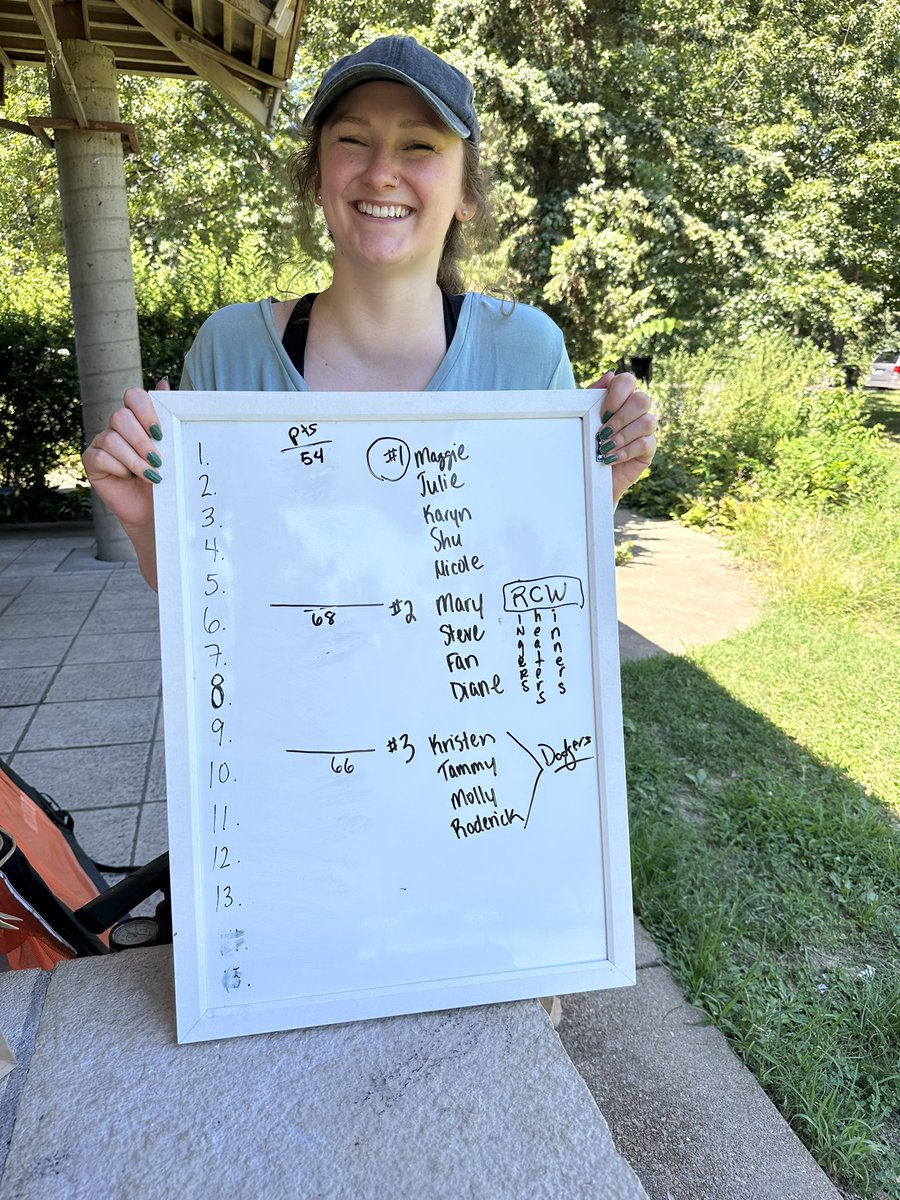 pts
1. 54 #1 Maggie
2. Julie
3. Karyn
4. Shu
5. Nicole
6. 68 #2 Mary RCW
7. Steve
8. Fan
Diane
Ringers
Cheaters
Winners
9. #3 Kristen
10. 66 Tammy Dodgers
Molly
11. Roderick
12.
13.
15.